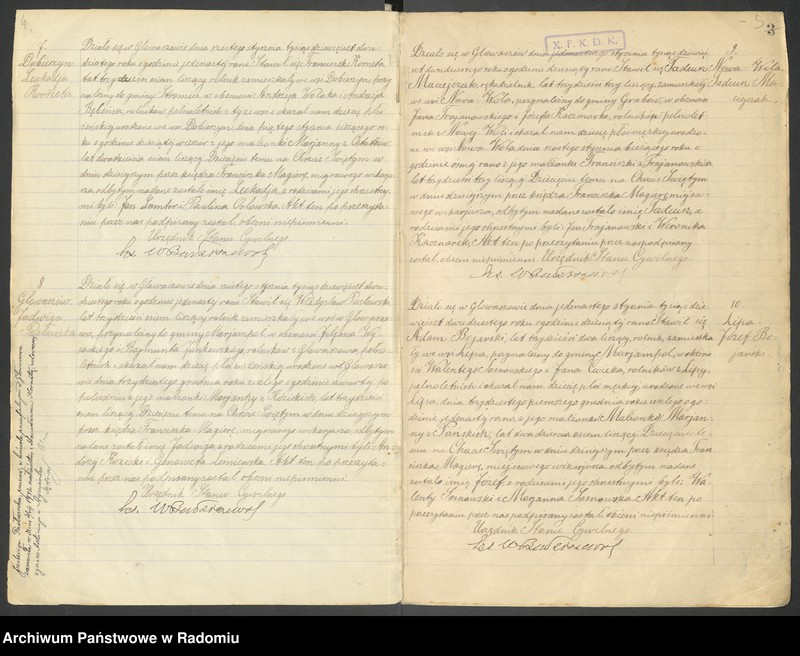 4.
7.
Dobieszyn
Leokadja
Działo się w Głowaczowie dnia szóstego stycznia tysiąc dziewięćset dwu-
dziestego roku o godzinie jedenastej rano Stawił się Franciszek
lat trzydzieści osiem liczący rolnik zamieszkały we wsi Dobieszyn, przy
należny do gminy Stromiec, w obecności Andrzeja Wolaka i Andrzeja
rolników pełnoletnich z tejże wsi i okazał nam dziecię płci
żeńskiej urodzone we wsi Dobieszyn, dnia piątego stycznia bieżącego ro-
ku o godzinie dziesiątej wieczór z jego małżonki Marjanny z
lat dwadzieścia osiem liczącej. Dziecięciu temu na Chrzcie Świętym w
dniu dzisiejszym przez księdza Franciszka Magierę, miejscowego wikarju-
sza odbytym nadane zostało imię Leokadja, a rodzicami jego chrzestny-
mi byli: Jan i Paulina Orłowska. Akt ten po przeczyta-
niu przez nas podpisany został, obecni niepiśmienni.
Urzędnik Stanu Cywilnego
Ks.
8
Głowaczów
Jadwiga
Pastewska
Działo się w Głowaczowie dnia szóstego stycznia tysiąc dziewięćset dwu-
dziestego roku o godzinie jedenastej rano Stawił się Władysław
lat trzydzieści osiem liczący, rolnik zamieszkały we wsi Głowaczo-
wie, przynależny do gminy Marjampol, w obecności Juljana
i Rajmunda Jankowskiego, rolników z Głowaczowa pełno-
letnich i okazał nam dziecię płci żeńskiej, urodzone w Głowaczo-
wie dnia trzydziestego grudnia roku zeszłego o godzinie czwartej po
południu z jego małżonki Marjanny z Kozickich, lat trzydzieści
osiem liczącej. Dziecięciu temu na Chrzcie Świętym w dniu dzisiejszym
przez księdza Franciszka Magierę, miejscowego wikarjusza, odbytym
nadane zostało imię Jadwiga a rodzicami jego chrzestnymi byli: An-
drzej Kozicki i Genowefa Łomiewska. Akt ten po przeczyta-
niu przez nas podpisany został obecni niepiśmienni.
Urzędnik Stanu Cywilnego
Ks.
- 5
3
X. F. K. D. K.
9.
Nowa Wola
Tadeusz Ma-
Działo się w Głowaczowie dnia jedenastego stycznia tysiąc dziewięć-
set dwudziestego roku o godzinie dziesiątej rano Stawił się Tadeusz
lat trzydzieści trzy liczący, zamieszkały
we wsi Nowa Wola, przynależny do gminy Grabów, w obecności
Jana Trojanowskiego i Józefa Kaczmarka, rolników pełnolet-
nich z Nowej Woli i okazał nam dziecię płci męskiej urodzo-
ne we wsi Nowa Wola dnia szóstego stycznia bieżącego roku o
godzinie ósmej rano z jego małżonki Franciszki z Trojanowskich
lat trzydzieści trzy liczącej. Dziecięciu temu na Chrzcie Świętym
w dniu dzisiejszym przez księdza Franciszka Magierę, miejsco-
wego wikarjusza, odbytym nadane zostało imię Tadeusz, a
rodzicami jego chrzestnymi byli: Jan Trojanowski i Weronika
Kaczmarek. Akt ten po przeczytaniu przez nas podpisany
został, obecni niepiśmienni. Urzędnik Stanu Cywilnego.
Ks.
10.
Lipa
Józef Bo-
jarski.
Działo się w Głowaczowie dnia jedenastego stycznia tysiąc dzie-
więćset dwudziestego roku o godzinie dziesiątej rano Stawił się
Adam Bojarski, lat trzydzieści dwa liczący, rolnik, zamieszka
ły we wsi Lipa, przynależny do gminy Marjampol, w obecno-
ści Walentego Sornowskiego i Jana rolników z Lipy,
pełnoletnich i okazał nam dziecię płci męskiej, urodzone we wsi
Lipa, dnia trzydziestego pierwszego grudnia roku zeszłego o go-
dzinie jedenastej rano, z jego małżonki Marjan-
ny z lat dwadzieścia osiem liczącej. Dziecięciu te-
mu na Chrzcie Świętym w dniu dzisiejszym przez księdza Fran
ciszka Magierę, miejscowego wikarjusza, odbytym nadane
zostało imię Józef, a rodzicami jego chrzestnymi byli: Wa-
lenty Sornowski i Marjanna Sornowska. Akt ten po
przeczytaniu przez nas podpisany został obecni niepiśmienni.
Urzędnik Stanu Cywilnego.
Ks.
Archiwum Państwowe w Radomiu